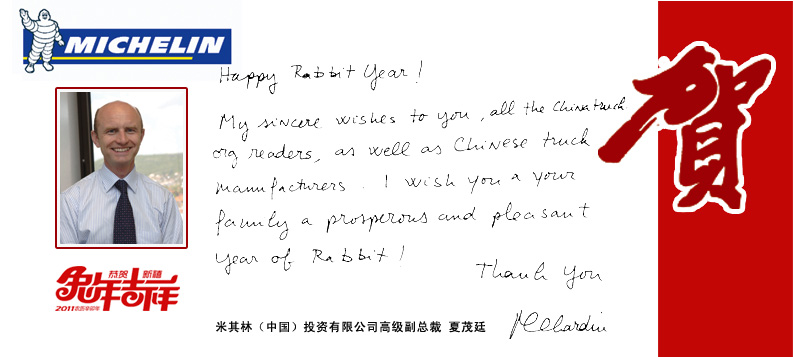 MICHELIN
Happy Rabbit Year!
My sincere wishes to you, all the Chinatruck
org readers, as well as Chinese truck
manufacturers. I wish you a your
family a prosperous and pleasant
year of Rabbit!
Thank you
恭贺 新禧
兔年吉祥
2011农历辛卯年
米其林（中国）投资有限公司高级副总裁 夏茂廷
贺